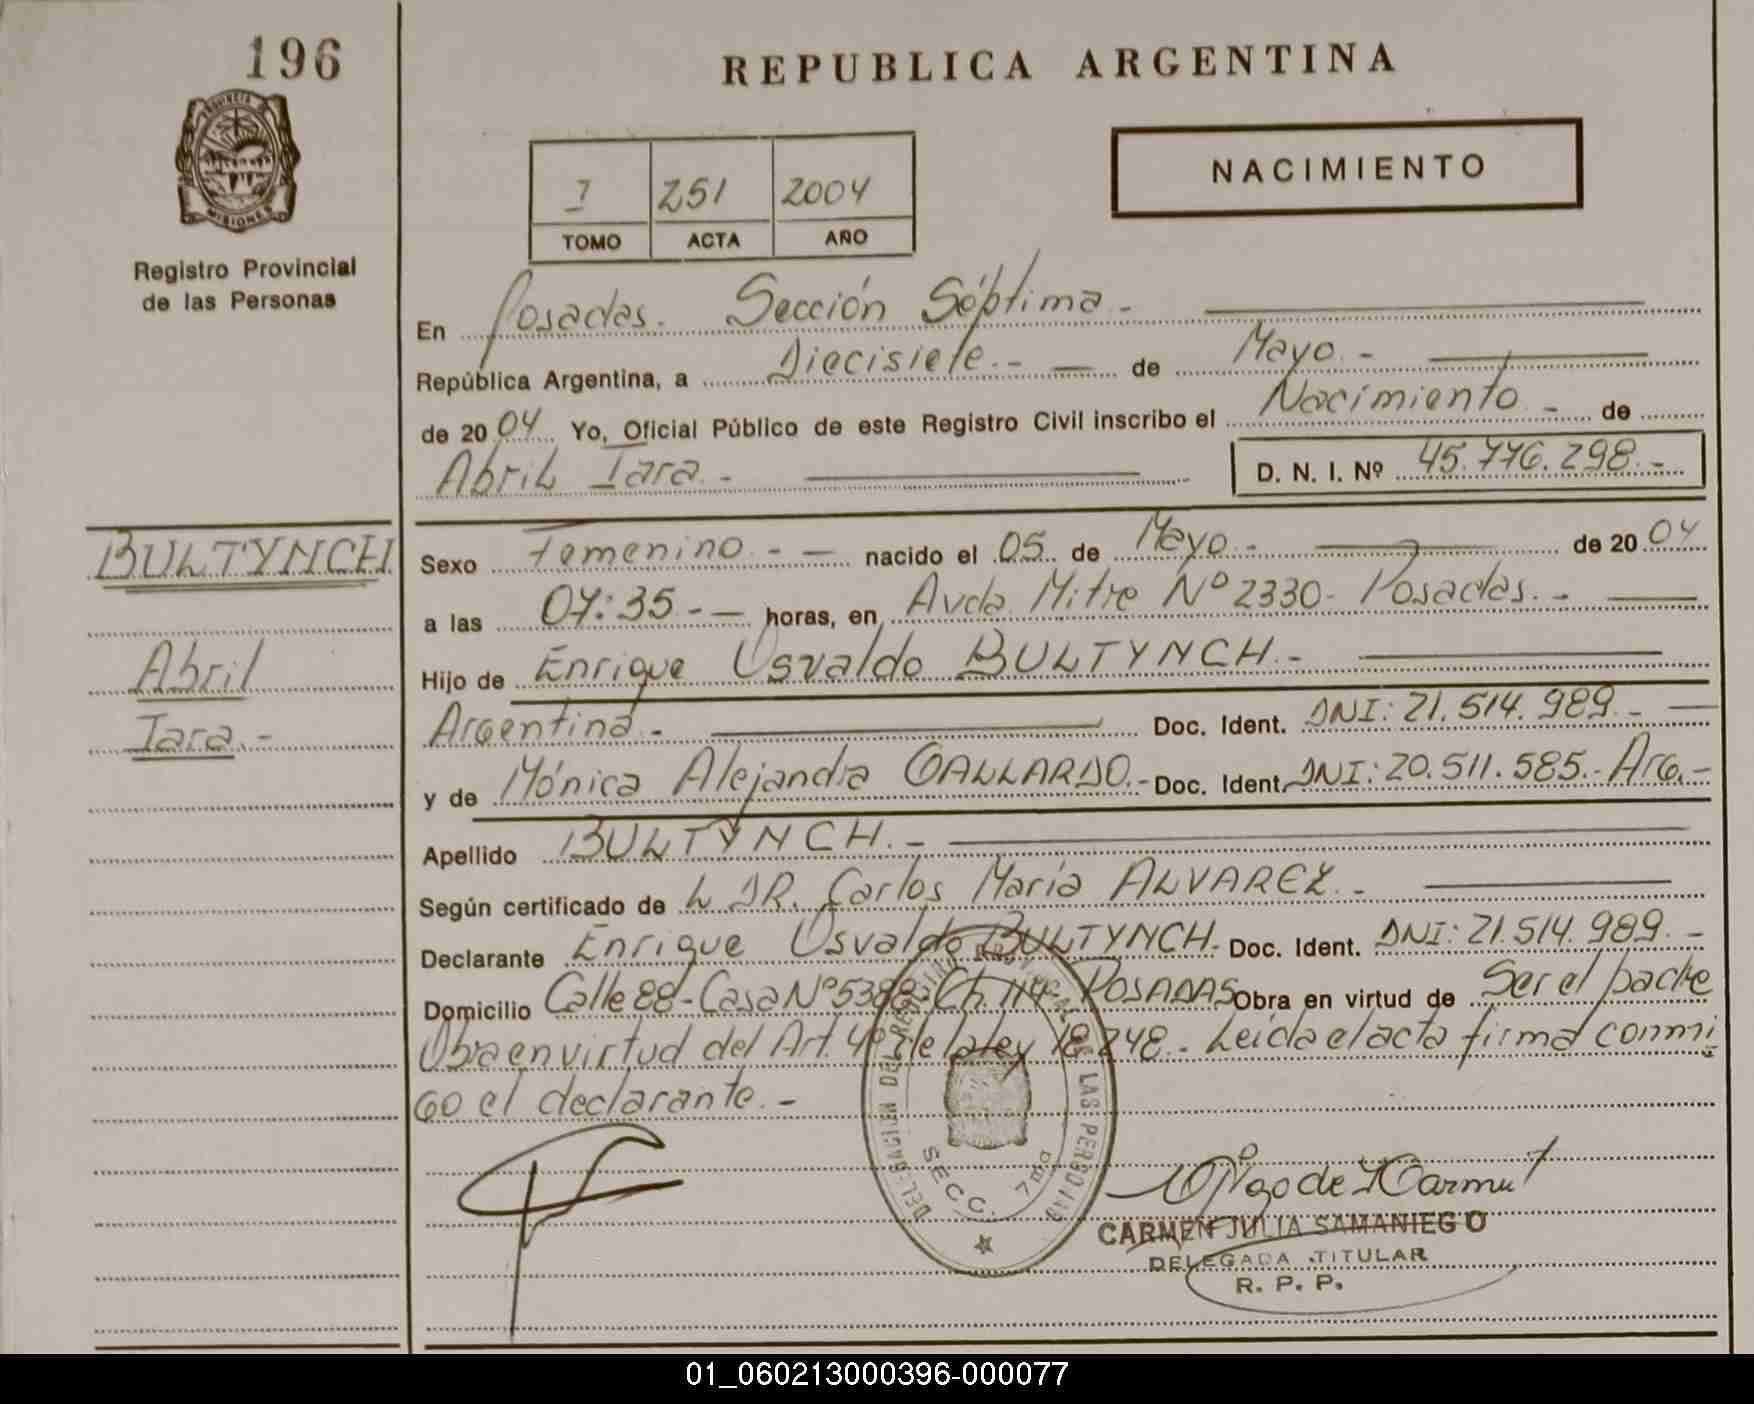 196
REPUBLICA ARGENTINA
PROVINCIA DE
MISIONES
Registro Provincial
de las Personas
I 251 2004
TOMO ACTA AÑO
NACIMIENTO
En Posadas. Sección Séptima.-
República Argentina, a Diecisiete.- de Mayo.-
de 2004 Yo, Oficial Público de este Registro Civil inscribo el Nacimiento - de
Abril Iara.- D. N. I. Nº 45.776.298.-
BULTYNCH
Abril
Iara.-
Sexo Femenino.- nacido el 05 de Mayo.- de 2004
a las 07:35.- horas, en Avda. Mitre Nº 2330- Posadas.-
Hijo de Enrique Osvaldo BULTYNCH.-
Argentina.- Doc. Ident. DNI: 21.514.989.-
y de Mónica Alejandra GALLARDO.- Doc. Ident. DNI: 20.511.585.- Arg.-
Apellido BULTYNCH.-
Según certificado de L DR. Carlos María ALVAREZ.-
Declarante Enrique Osvaldo BULTYNCH- Doc. Ident. DNI: 21.514.989.-
Domicilio Calle 88-Casa Nº 5388-Ch. 114- POSADAS Obra en virtud de Ser el padre
Obra en virtud del Art. 4º de la ley 18.248.- Leída el acta firma conmi
go el declarante.-
DELEGACION DEL REGISTRO PROVINCIAL DE LAS PERSONAS
SECC. 7ma
CARMEN JULIA SAMANIEGO
DELEGADA TITULAR
R. P. P.
01_060213000396-000077